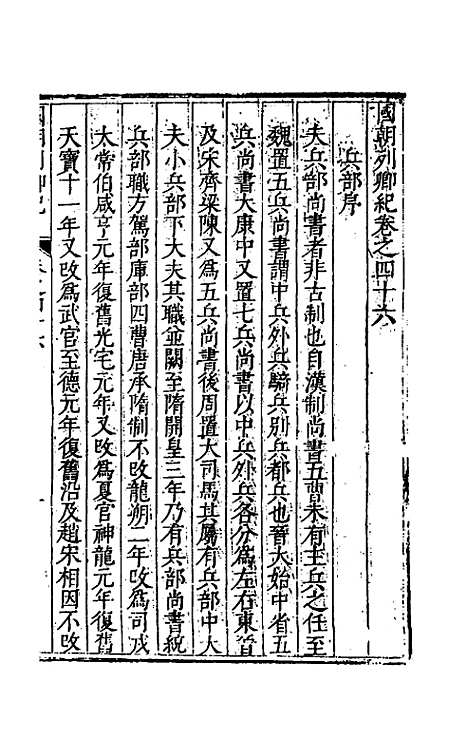 國朝列卿紀卷之四十六
兵部序
夫兵部尚書者非古制也自漢制尚書五曹未有主兵之任至
魏置五兵尚書謂中兵外兵騎兵别兵都兵也晉太始中省五
兵尚書太康中又置七兵尚書以中兵外兵各分為左右東晉
及宋齊梁陳又為五兵尚書後周置大司馬其屬有兵部中大
夫小兵部下大夫其職並闕至隋開皇三年乃有兵部尚書統
兵部職方駕部庫部四曹唐承隋制不改龍朔二年改為司戎
太常伯咸亨元年復舊光宅元年又改為夏官神龍元年復舊
天寶十一年又改為武官至德元年復舊沿及趙宋相因不改